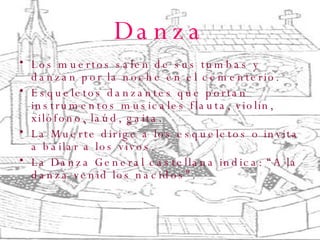 Danza
• Los muertos salen de sus tumbas y
danzan por la noche en el cementerio.
• Esqueletos danzantes que portan
instrumentos musicales flauta, violín,
xilófono, laúd, gaita.
• La Muerte dirige a los esqueletos o invita
a bailar a los vivos.
• La Danza General castellana indica: "A la
danza venid los nacidos"